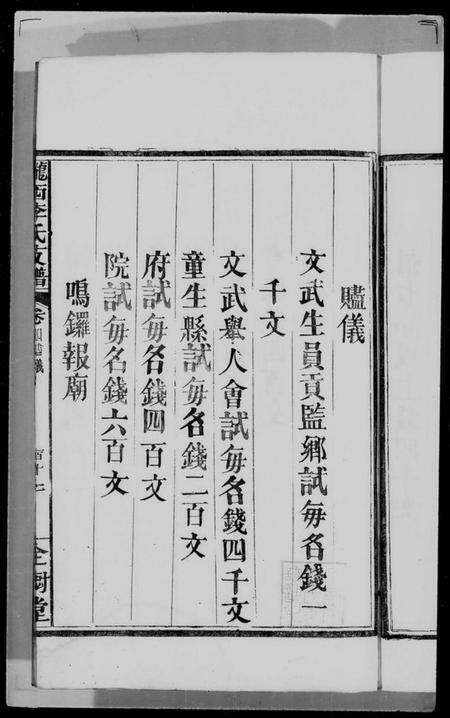 贐儀
文武生員貢監鄉試每名錢一
千文
文武舉人會試每名錢四千文
童生縣試每名錢二百文
府試每名錢四百文
院試每名錢六百文
鳴鑼報廟
隴西李氏支譜